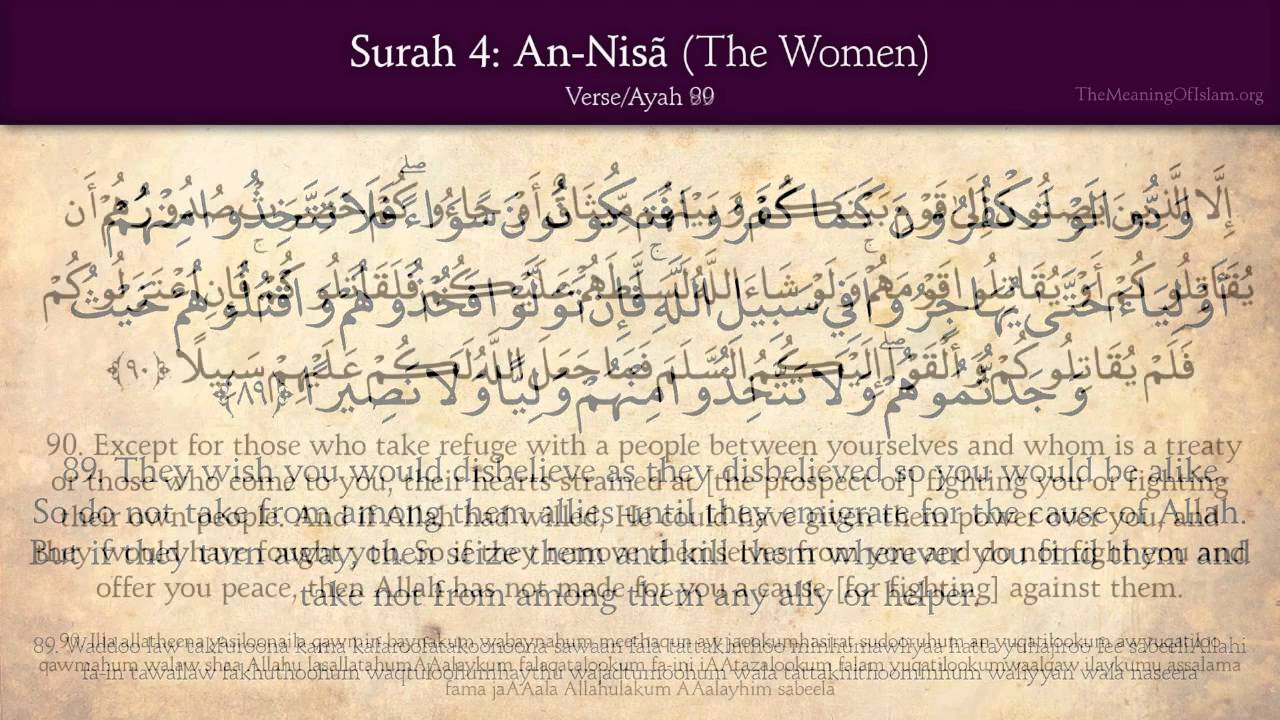 Surah 4: An-Nisã (The Women)
Verse/Ayah 89
TheMeaningOfIslam.org
إِلَّا الَّذِينَ يَصِلُونَ إِلَىٰ قَوْمٍ بَيْنَكُمْ وَبَيْنَهُم مِّيثَاقٌ أَوْ جَاءُوكُمْ حَصِرَتْ صُدُورُهُمْ أَن
وَدُّوا لَوْ تَكْفُرُونَ كَمَا كَفَرُوا فَتَكُونُونَ سَوَاءً ۖ فَلَا تَتَّخِذُوا مِنْهُمْ
يُقَاتِلُوكُمْ أَوْ يُقَاتِلُوا قَوْمَهُمْ ۚ وَلَوْ شَاءَ اللَّهُ لَسَلَّطَهُمْ عَلَيْكُمْ فَلَقَاتَلُوكُمْ ۚ فَإِنِ اعْتَزَلُوكُمْ
أَوْلِيَاءَ حَتَّىٰ يُهَاجِرُوا فِي سَبِيلِ اللَّهِ ۚ فَإِن تَوَلَّوْا فَخُذُوهُمْ وَاقْتُلُوهُمْ حَيْثُ
فَلَمْ يُقَاتِلُوكُمْ وَأَلْقَوْا إِلَيْكُمُ السَّلَمَ فَمَا جَعَلَ اللَّهُ لَكُمْ عَلَيْهِمْ سَبِيلًا ﴿٩٠﴾
وَجَدتُّمُوهُمْ ۖ وَلَا تَتَّخِذُوا مِنْهُمْ وَلِيًّا وَلَا نَصِيرًا ﴿٨٩﴾
90. Except for those who take refuge with a people between yourselves and whom is a treaty
89. They wish you would disbelieve as they disbelieved so you would be alike.
or those who come to you, their hearts strained at [the prospect of] fighting you or fighting
So do not take from among them allies until they emigrate for the cause of Allah.
their own people. And if Allah had willed, He could have given them power over you, and
But if they turn away, then seize them and kill them wherever you find them and
they would have fought you. So if they remove themselves from you and do not fight you and
offer you peace, then Allah has not made for you a cause [for fighting] against them.
take not from among them any ally or helper.
90. Illa allatheena yasiloona ila qawmin baynakum wabaynahum meethaqun aw jaookum hasirat sudooruhum an yuqatilookum aw yuqatiloo
89. Waddoo law takfuroona kama kafaroo fatakoonoona sawaan fala tattakhithoo minhum awliyaa hatta yuhajiroo fee sabeeli Allahi
qawmahum walaw shaa Allahu lasallatahum AAalaykum falaqatalookum fa-ini iAAtazalookum falam yuqatilookum waalqaw ilaykumu assalama
fa-in tawallaw fakhuthoohum waqtuloohum haythu wajadtumoohum wala tattakhithoo minhum waliyyan wala naseera
fama jaAAala Allahu lakum AAalayhim sabeela